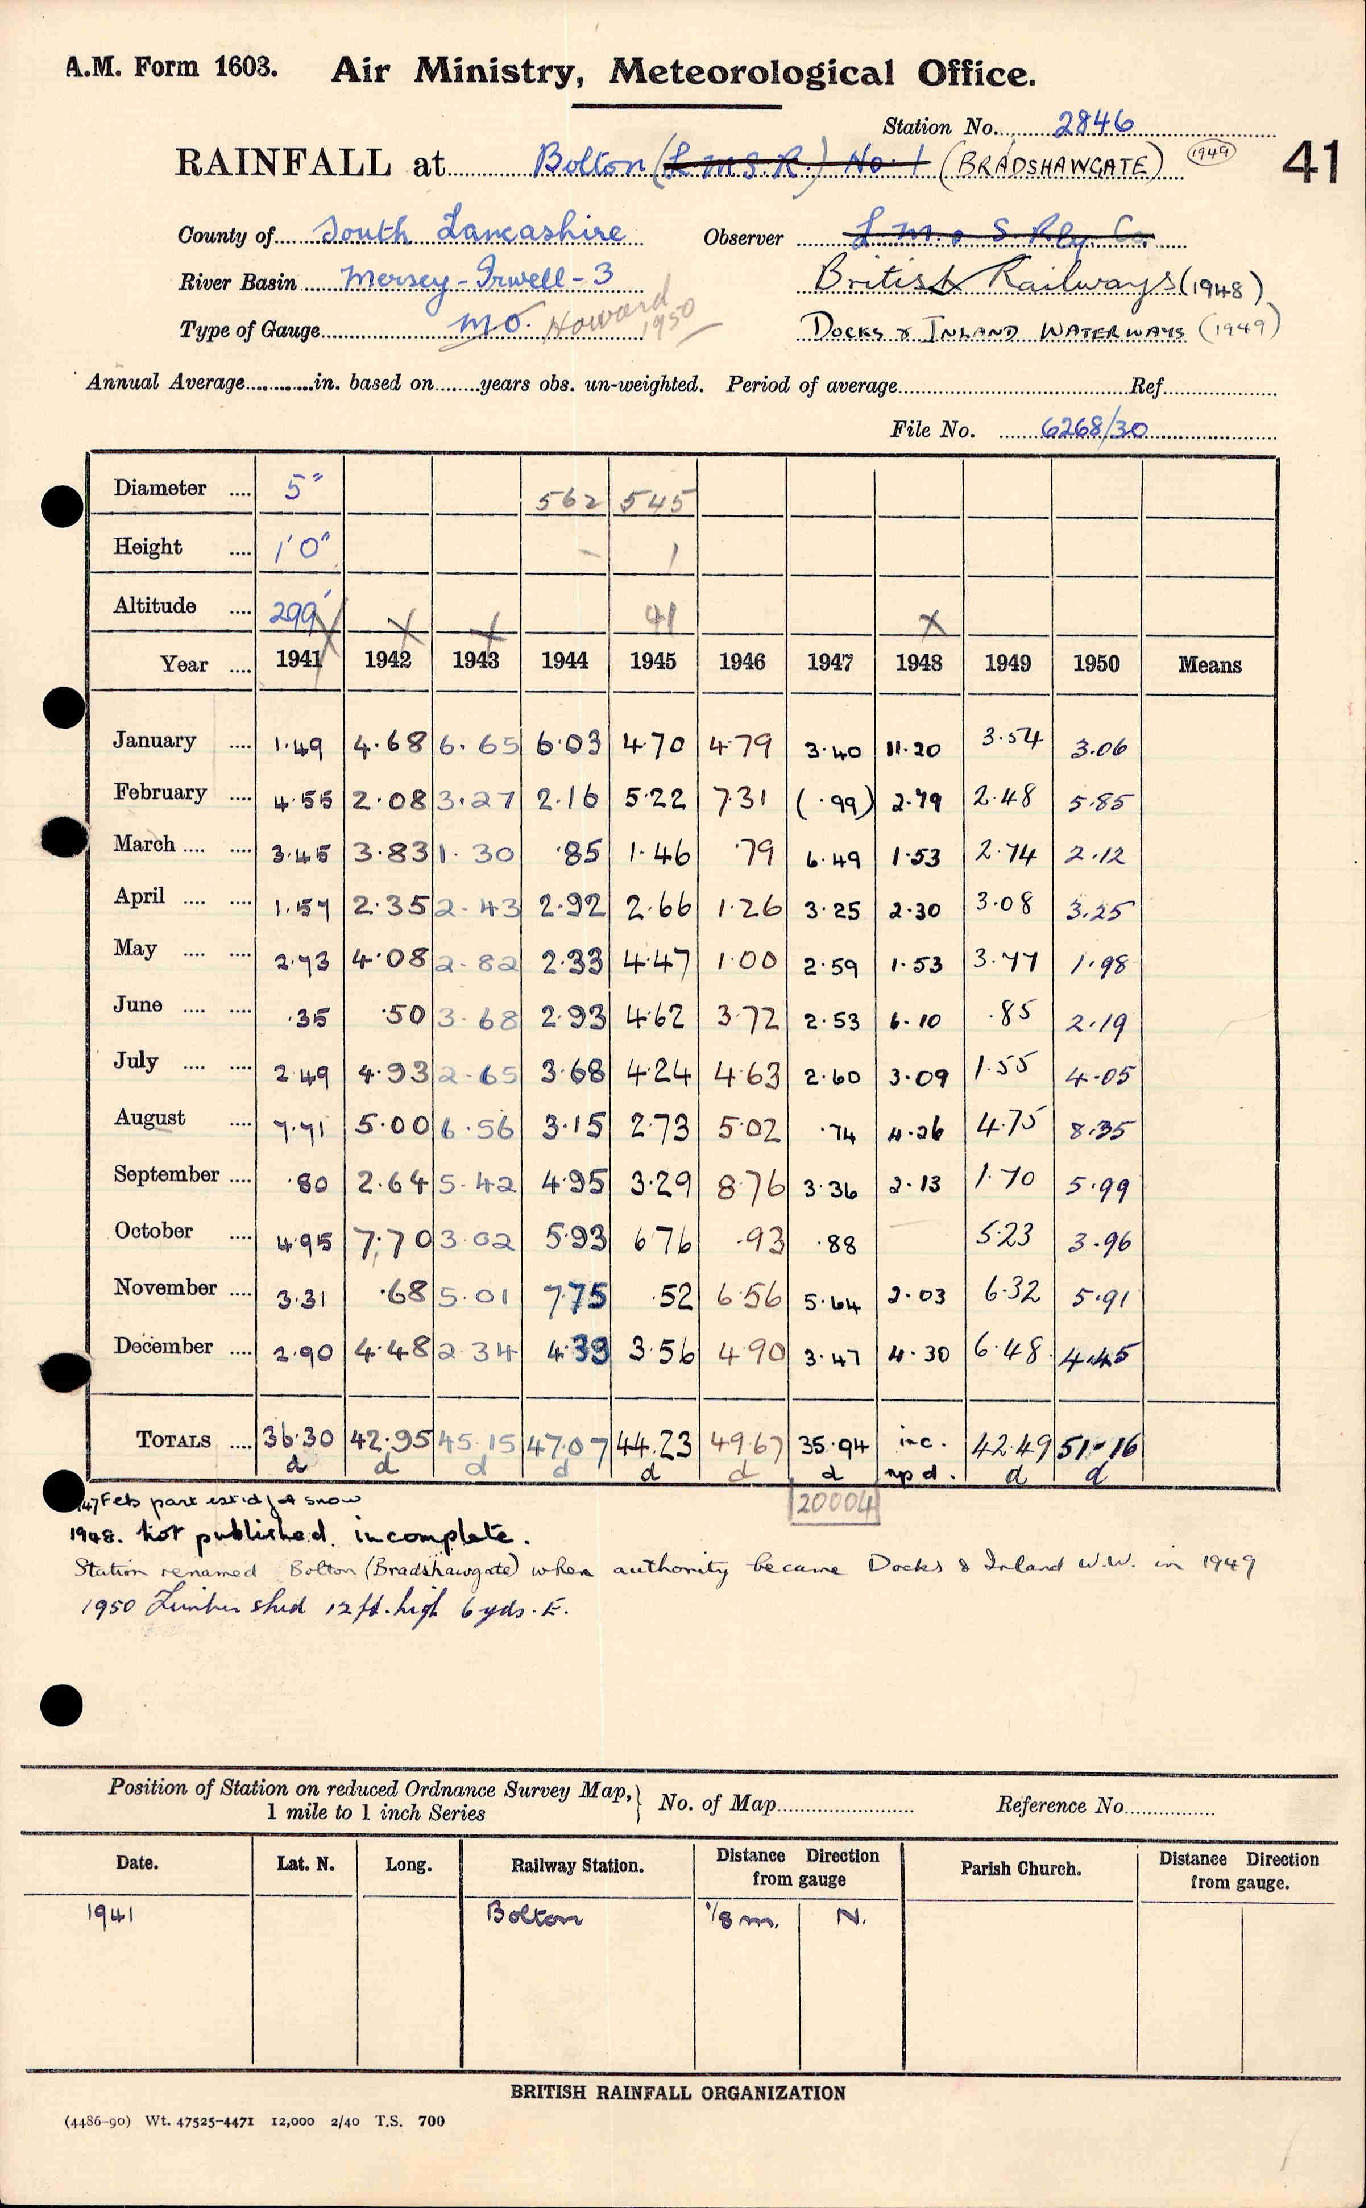 A.M. Form 1603. Air Ministry, Meteorological Office.
Station No. 2846
RAINFALL at Bolton (L.M.S.R.) No. 1 (BRADSHAWGATE) (1949) 41
County of South Lancashire Observer L.M. & S. Rly. Co.
River Basin Mersey - Irwell - 3 British Railways (1948)
Type of Gauge MO. Howard 1950 DOCKS & INLAND WATERWAYS (1949)
Annual Average............in. based on........years obs. un-weighted. Period of average........ Ref........
File No. 6268/30
Diameter .... 5" 562 545
Height .... 1'0" - 1
Altitude .... 299' X X X 41 X
Year .... 1941 1942 1943 1944 1945 1946 1947 1948 1949 1950 Means
January .... 1.49 4.68 6.65 6.03 4.70 4.79 3.40 11.20 3.54 3.06
February .... 4.55 2.08 3.27 2.16 5.22 7.31 (.99) 2.79 2.48 5.85
March .... .... 3.45 3.83 1.30 .85 1.46 .79 6.49 1.53 2.74 2.12
April .... .... 1.57 2.35 2.43 2.92 2.66 1.26 3.25 2.30 3.08 3.25
May .... .... 2.73 4.08 2.82 2.33 4.47 1.00 2.59 1.53 3.77 1.98
June .... .... .35 .50 3.68 2.93 4.62 3.72 2.53 6.10 .85 2.19
July .... .... 2.49 4.93 2.65 3.68 4.24 4.63 2.60 3.09 1.55 4.05
August .... 7.71 5.00 6.56 3.15 2.73 5.02 .74 4.26 4.75 8.35
September .... .80 2.64 5.42 4.95 3.29 8.76 3.36 2.13 1.70 5.99
October .... 4.95 7.70 3.02 5.93 6.76 .93 .88 5.23 3.96
November .... 3.31 .68 5.01 7.75 .52 6.56 5.64 2.03 6.32 5.91
December .... 2.90 4.48 2.34 4.39 3.56 4.90 3.47 4.30 6.48 4.45
TOTALS .... 36.30 42.95 45.15 47.07 44.23 49.67 35.94 inc. 42.49 51.16
d d d d d d d np d. d d
20004
1947 Feb part est'd f.t. snow
1948. Not published. incomplete.
Station renamed Bolton (Bradshawgate) when authority became Docks & Inland W.W. in 1949
1950 Timber shed 12 ft. high 6 yds. E.
Position of Station on reduced Ordnance Survey Map, 1 mile to 1 inch Series } No. of Map........ Reference No........
Date. Lat. N. Long. Railway Station. Distance Direction from gauge Parish Church. Distance Direction from gauge.
1941 Bolton 1/8 m. N.
BRITISH RAINFALL ORGANIZATION
(4486-90) Wt. 47525-4471 12,000 2/40 T.S. 700